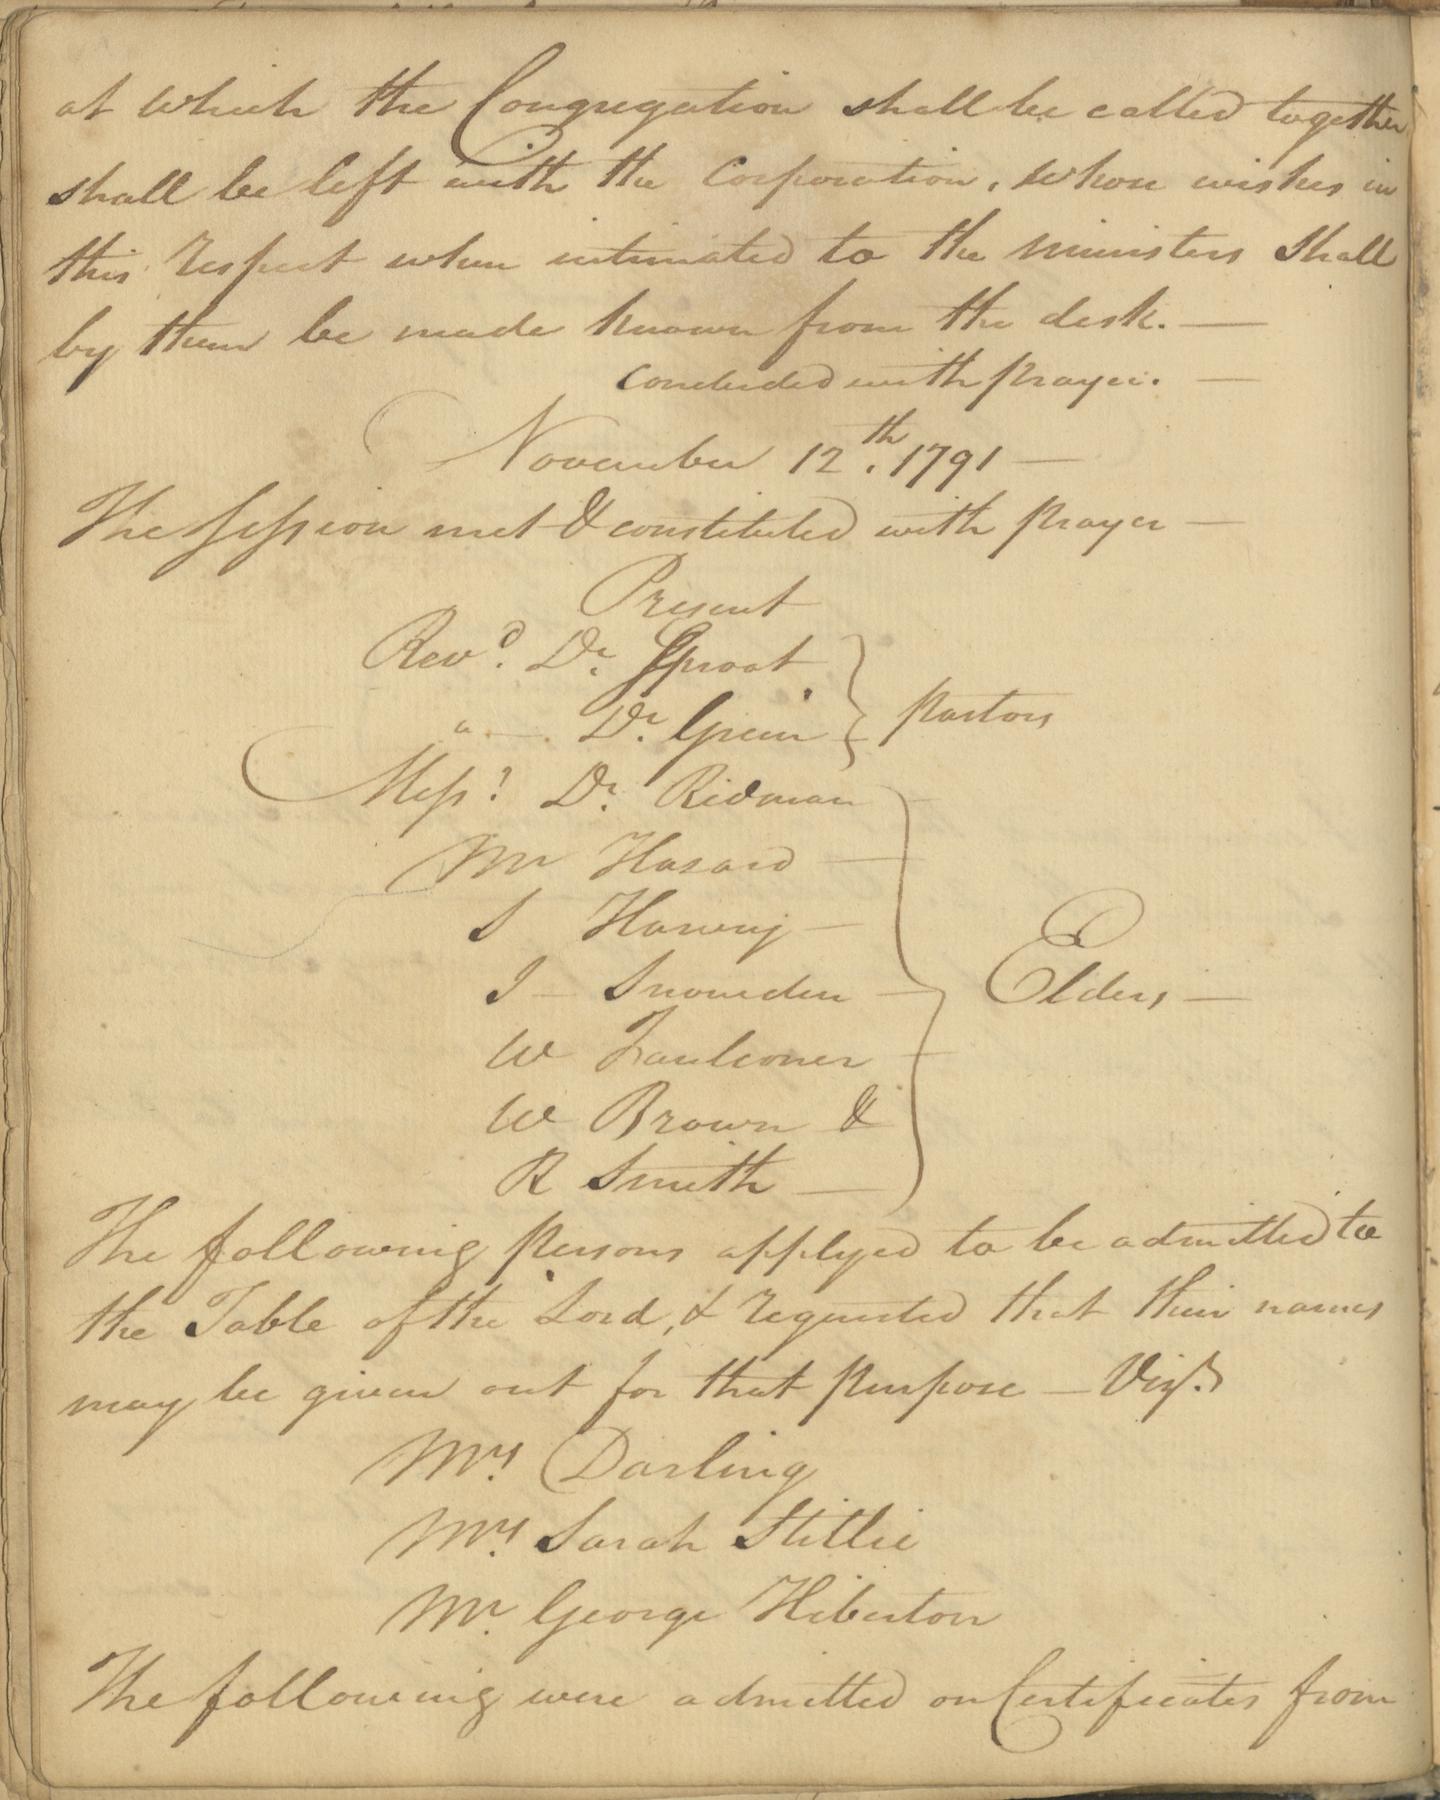 at which the Congregation shall be called together
shall be left with the Corporation, whose wishes in
this respect when intimated to the ministers shall
by them be made known from the desk. —
Concluded with prayer. —
November 12th. 1791 —
The Session met & constituted with prayer —
Present
Revd. Dr. Sproat
" — Dr. Green
Pastors
Messrs. Dr. Redman
Mr Hasard —
S Harvey —
I — Snowden —
Elders —
W Faulconer —
W Brown &
R Smith —
The following persons applyed to be admitted to
the Table of the Lord, & requested that their names
may be given out for that purpose — Vizt.
Mrs. Darling
Mrs. Sarah Stillie
Mr. George Hiberton
The following were admitted on Certificates from